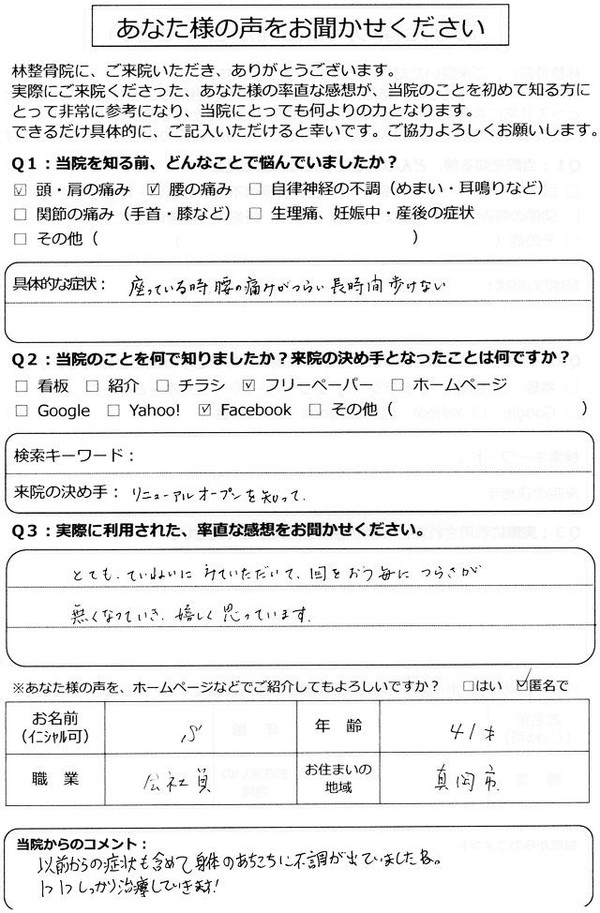 あなた様の声をお聞かせください
林整骨院に、ご来院いただき、ありがとうございます。
実際にご来院くださった、あなた様の率直な感想が、当院のことを初めて知る方に
とって非常に参考になり、当院にとっても何よりの力となります。
できるだけ具体的に、ご記入いただけると幸いです。ご協力よろしくお願いします。
Q1：当院を知る前、どんなことで悩んでいましたか？
☑ 頭・肩の痛み ☑ 腰の痛み □ 自律神経の不調（めまい・耳鳴りなど）
□ 関節の痛み（手首・膝など） □ 生理痛、妊娠中・産後の症状
□ その他（ ）
具体的な症状： 座っている時腰の痛みがつらい長時間歩けない
Q2：当院のことを何で知りましたか？来院の決め手となったことは何ですか？
□ 看板 □ 紹介 □ チラシ ☑ フリーペーパー □ ホームページ
□ Google □ Yahoo! ☑ Facebook □ その他（ ）
検索キーワード：
来院の決め手： リニューアルオープンを知って、
Q3：実際に利用された、率直な感想をお聞かせください。
とても、ていねいにみていただいて、回をおう毎につらさが
無くなっていき、嬉しく思っています。
※あなた様の声を、ホームページなどでご紹介してもよろしいですか？ □はい ☑匿名で
お名前 S 年 齢 41才
（イニシャル可）
職 業 会社員 お住まいの 真岡市
地域
当院からのコメント：
以前からの症状も含めて身体のあちこちに不調が出ていましたね。
しっかり治療していきます!